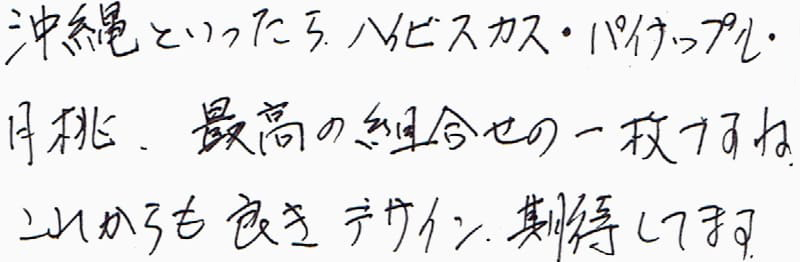 沖縄といったら、ハイビスカス・パイナップル・
月桃、最高の組合せの一枚ですね。
これからも良きデザイン、期待してます。